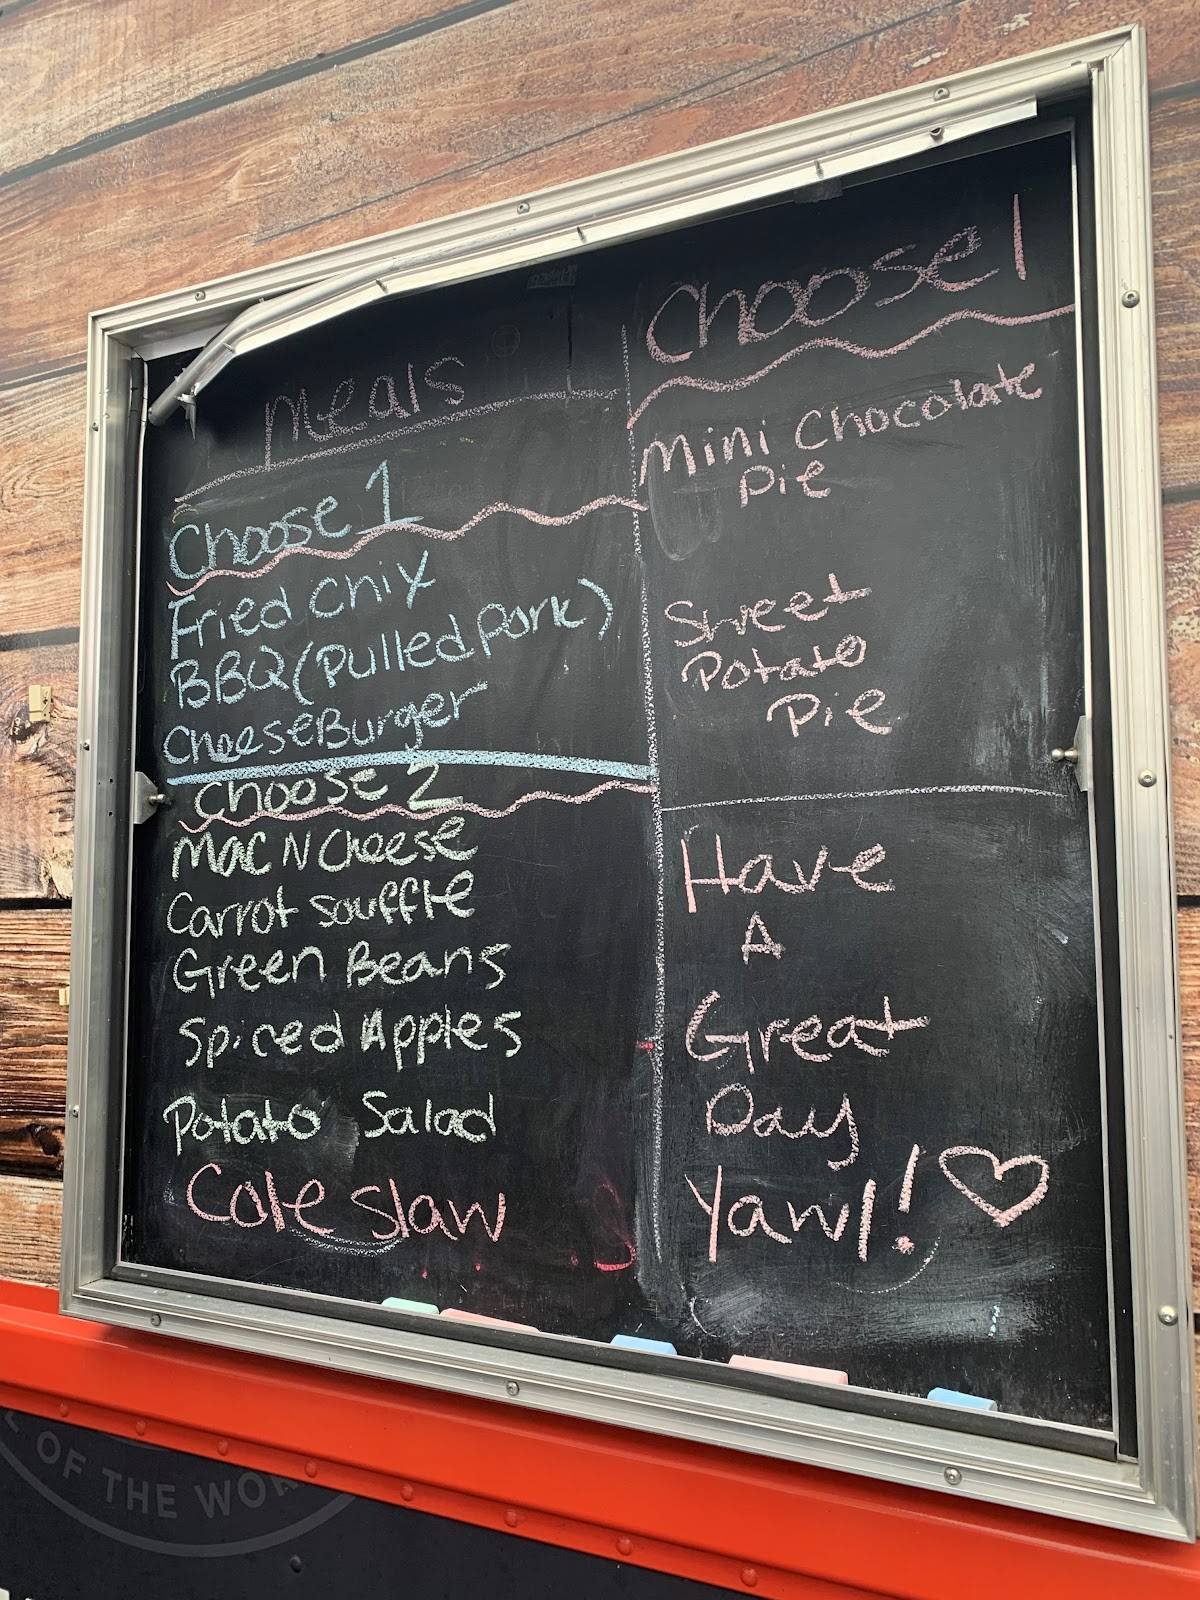 Meals
Choose 1
Fried Chix
BBQ (Pulled Pork)
CheeseBurger
Choose 2
Mac N Cheese
Carrot Souffle
Green Beans
Spiced Apples
Potato Salad
Cole Slaw
Choose 1
Mini Chocolate
Pie
Sweet
Potato
Pie
Have
A
Great
Day
Yawl!
OF THE WOR